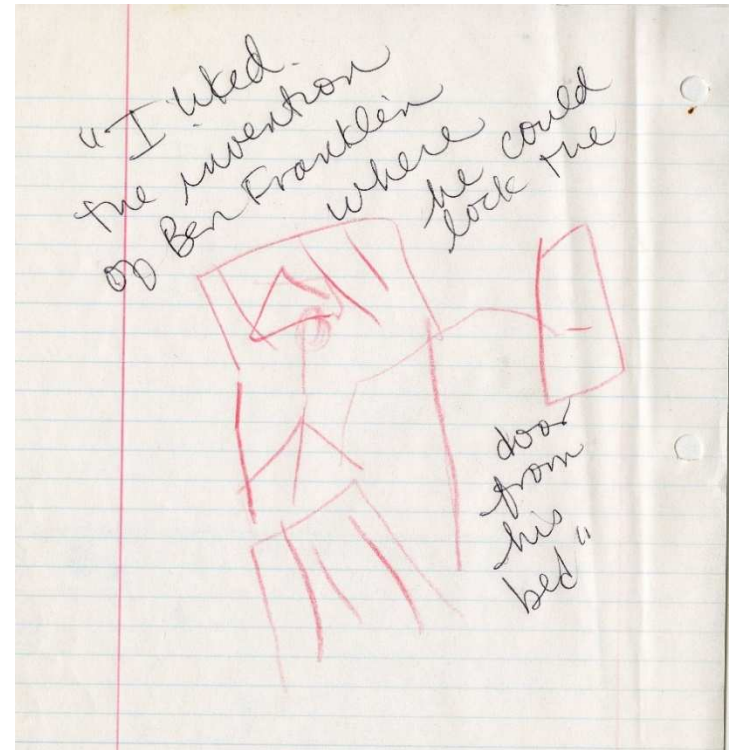 "I liked
the invention
of Ben Franklin
where
he could
lock the
door
from
his
bed"